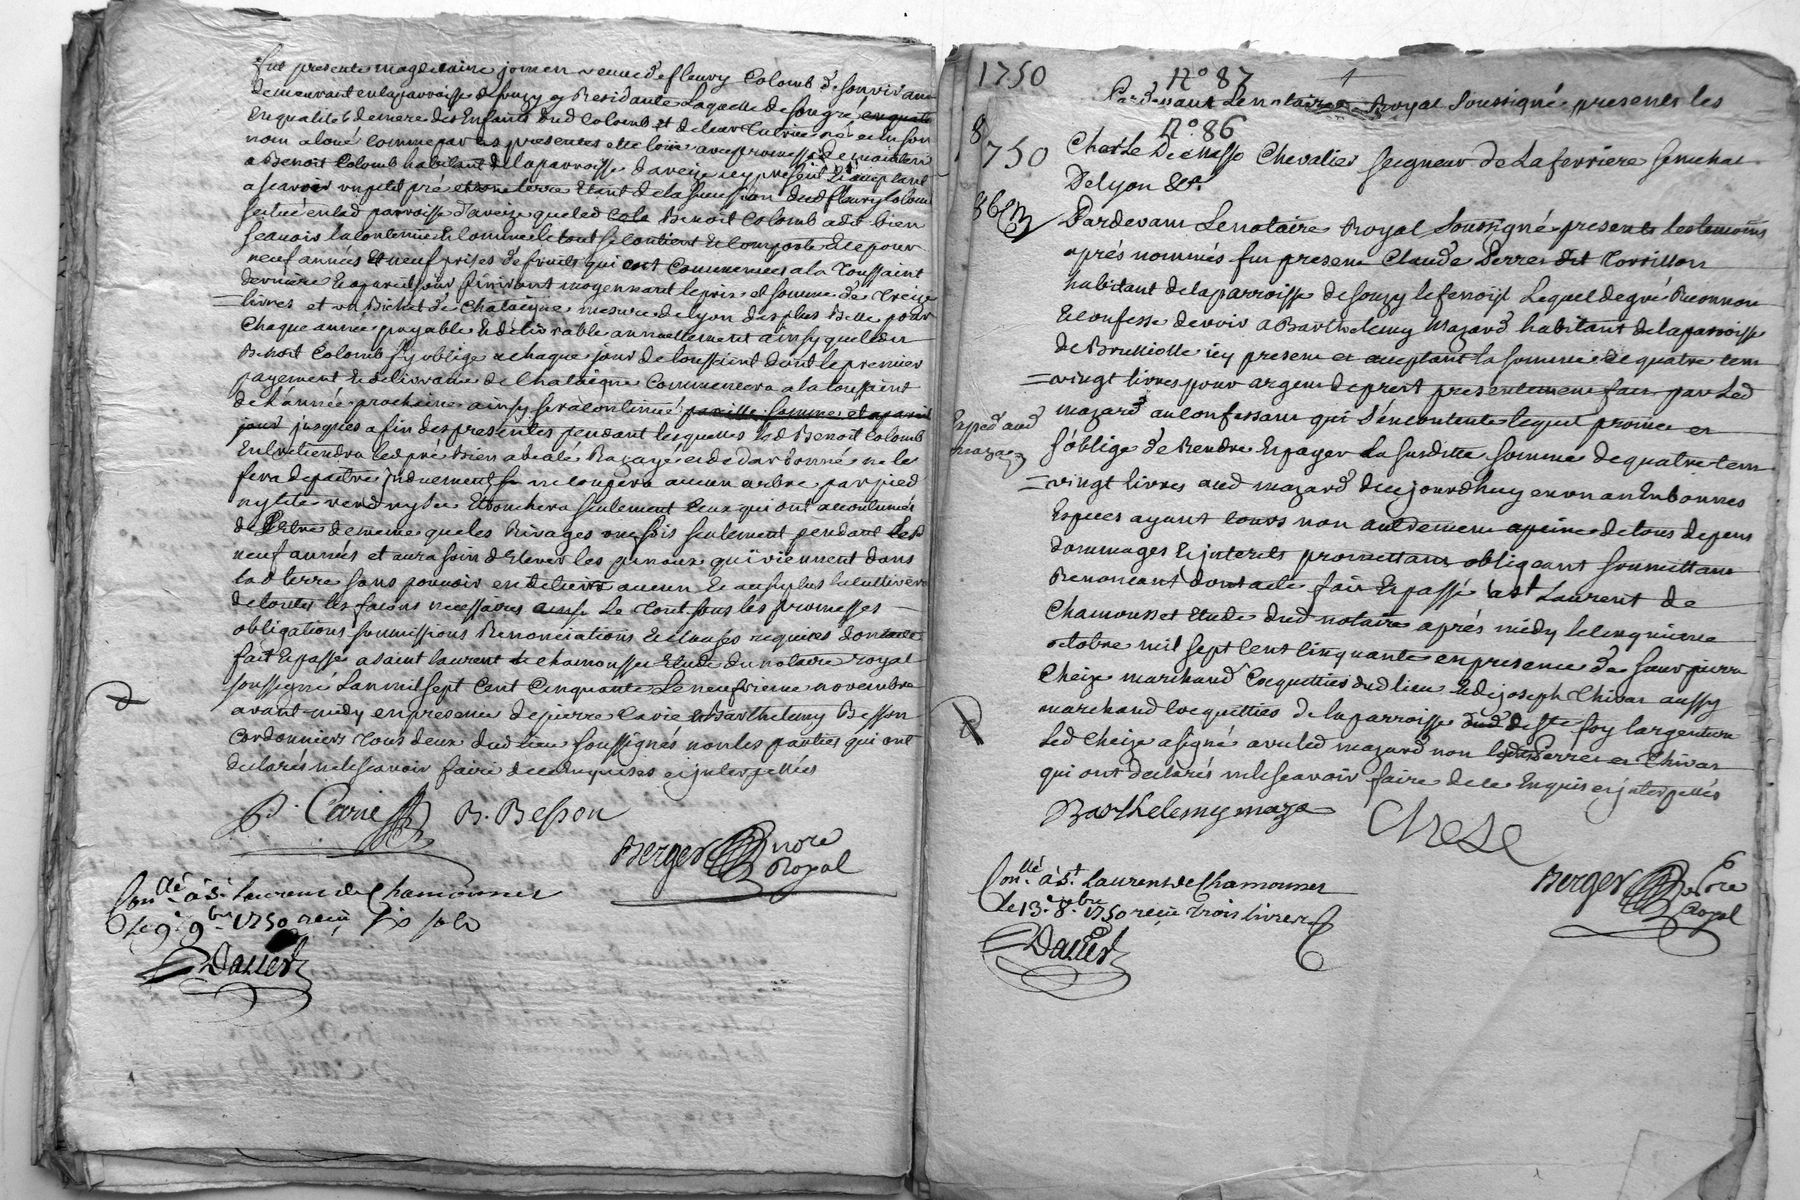 fut presente magdelaine joinen veuve de fleury Colomb de son vivant
demeurant en la parroisse de souzy y Residante Laquelle de son gré
En qualité de mere des Enfants dud Colomb et de leur tutrice
nom a loué comme par les presentes elle loue avec promesse de maintenir
a Benoit Colomb habitant de la parroisse d'aveize icy present et acceptant
a scavoir un petit pré terre Etant de la succession dud fleury Colomb
situé en lad parroisse d'aveize que led Benoit Colomb a dit bien
scavoir la contenue Et comme le tout se contient Et comporte Et ce pour
neuf années Et neuf prises de fruits qui ont Commencées a la Toussaint
derniere Et a pareil jour finiront moyennant le prix et somme de Treize
livres et un Bichet de Chataigne mesure de lyon des plus Belle pour
Chaque année payable Et delivrable annuellement ainsy que led
Benoit Colomb s'y oblige a chaque jour de toussient dont le premier
payement Et delivrance de Chataigne Commencera a la toussaint
de l'année prochaine ainsy sera continué pareille somme et a pareil
jour jusques a fin des presentes pendant lesquelles led Benoit Colomb
Entretiendra led pré Bien
fera depaitre ne coupera aucun arbre par pied
ny tete Et Ebranchera seulement Ceux qui ont accoutumés
de L'etre de meme que les Rivages une fois seulement pendant lesd
neuf années et aura soin d'Elever les qui viennent dans
lad terre sans pouvoir en aucun Et au surplus la cultivera
de toutes les façons necessaires Le Tout sous les promesses
obligations soumissions Renonciations Et clauses requises dont acte
fait Et passé a saint laurent de chamousset Etude du notaire royal
soussigné Lan mil sept Cent Cinquante Le neufvieme novembre
avant midy en presence de pierre Carie et Barthelemy Besson
Cordonniers Tous deux dud lieu soussignés non les parties qui ont
declarés ne le scavoir faire de ce Enquises et interpellées
P. Carie B. Besson
Berger nore
Royal
Conllé à St Laurent de Chamousset
Le 9e 9bre 1750 reçu six sols
Dallet
1750 N° 87
Par devant Le notaire Royal Soussigné, presents les
N° 86
8
1750 Charle De Masso Chevalier Seigneur de La ferriere Senechal
De lyon &a.
86 Pardevant Le notaire Royal Soussigné presents les temoins
aprés nommés fut present Claude Perret dit Torrillon
habitant de la parroisse de souzy Lequel de gré Reconnoit
Et confesse devoir a Barthelemy Mazard habitant de la parroisse
de Brulliolle icy present et acceptant la somme de quatre cent
vingt livres pour argent de prest presentement fait par Led
mazard au confessant qui s'en contente lequel promet et
Exped aud
mazard
s'oblige de Rendre Et payer La susditte somme de quatre cent
vingt livres aud mazard d'icy jourdhuy en un an En bonnes
Especes ayant cours non autrement a peine de tous depens
dommages Et interets promettant obligeant soumettant
Renonçant dont acte fait Et passé a st Laurent de
Chamousset Etude dud notaire aprés midy le cinquieme
octobre mil sept Cent Cinquante en presence de sieur pierre
Cheize marchand Coquettier dud lieu Et de joseph Thivar aussy
marchand Coquettier de la parroisse de Ste foy l'argentiere
Led Cheize a signé avec led mazard non led Perret et Thivar
qui ont declarés ne le scavoir faire de ce Enquis et interpellés
Barthelemy maza Chese
Berger nore
Royal
Conllé à St Laurent de Chamousset
Le 13e 8bre 1750 reçu trois livres
Dallet